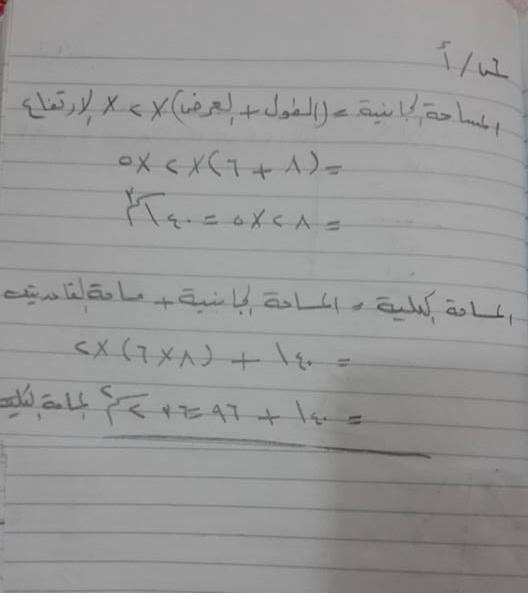 /أ
المساحة الجانبية = (الطول + العرض) × ٢ × الإرتفاع
= (٨ + ٦) × ٢ × ٥
= ٢٨ × ٥ = ١٤٠ سم٢
المساحة الكلية = المساحة الجانبية + مساحة القاعدتين
= ١٤٠ + (٨ × ٦) × ٢
= ١٤٠ + ٩٦ = ٢٣٦ سم٢ المساحة الكلية